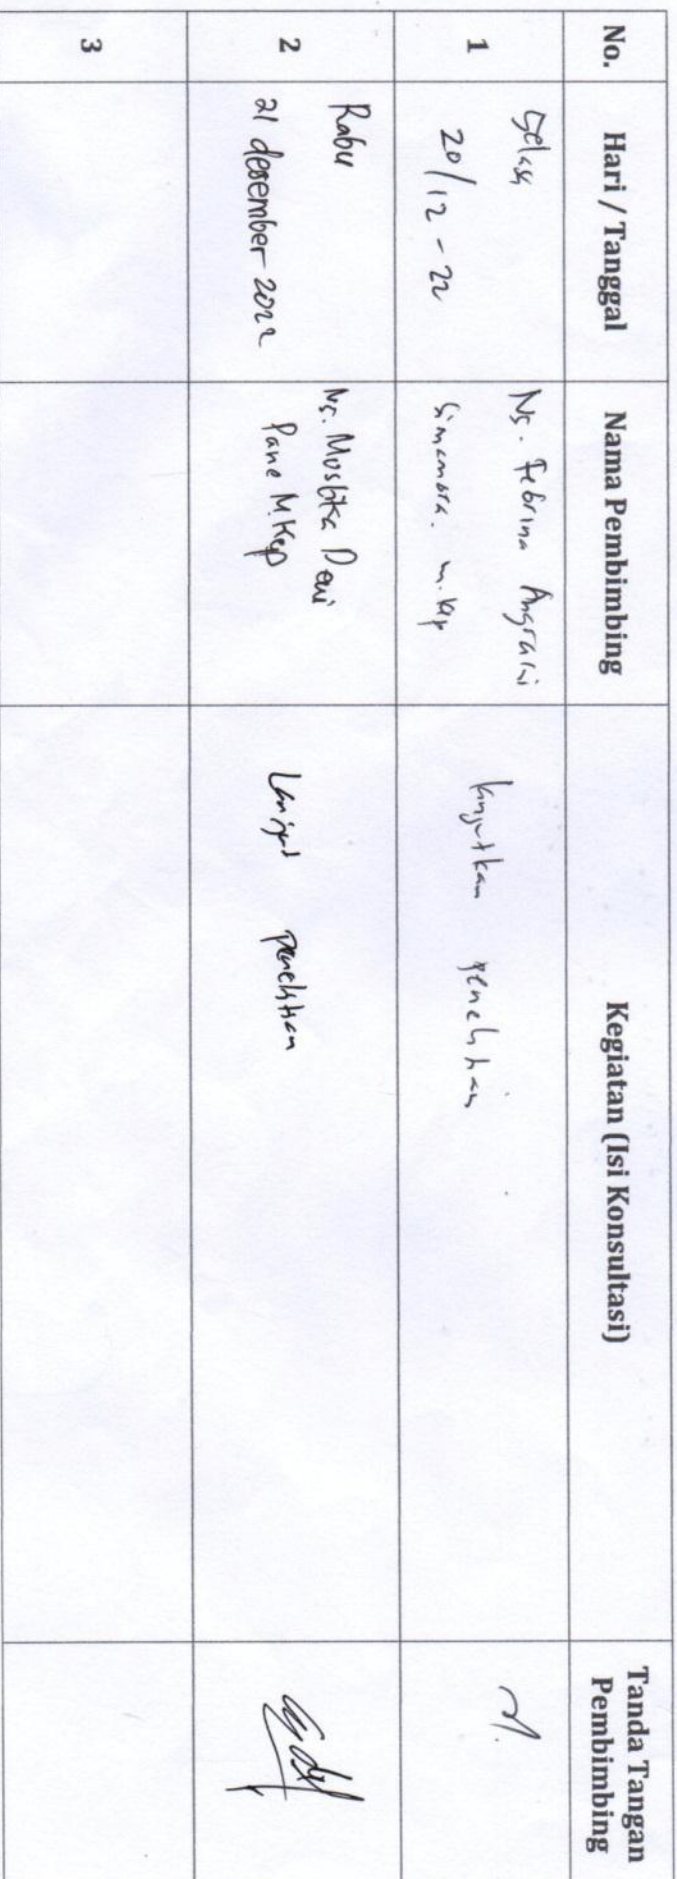 No.
Hari / Tanggal
Nama Pembimbing
Kegiatan (Isi Konsultasi)
Tanda Tangan
Pembimbing
1
Selasa
20/12-22
Ns. Febrina Angraini
Simamora. M.Kep
lanjutkan penelitian
2
Rabu
21 desember 2022
Ns. Mustika Dewi
Pane M.Kep
Lanjut penelitian
3